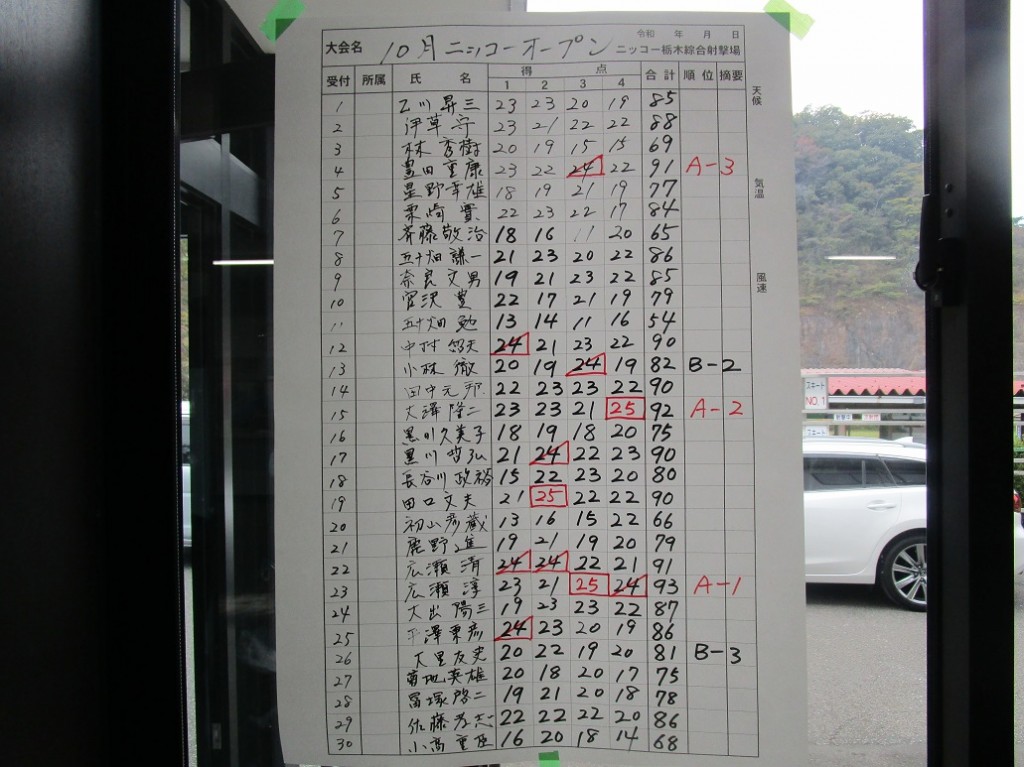 大会名 10月ニッコーオープン
令和 年 月 日
ニッコー栃木綜合射撃場
受付 所属 氏名 得点 1 2 3 4 合計 順位 摘要
1 乙川昇三 23 23 20 19 85
2 伊草守 23 21 22 22 88
3 林秀樹 20 19 15 15 69
4 豊田重康 23 22 24 22 91 A-3
5 星野幸雄 18 19 21 19 77
6 栗崎實 22 23 22 17 84
7 斉藤敬治 18 16 11 20 65
8 五十畑謙一 21 23 20 22 86
9 奈良文男 19 21 23 22 85
10 宮沢豊 22 17 21 19 79
11 五十畑勉 13 14 11 16 54
12 中村 24 21 23 22 90
13 小林徹 20 19 24 19 82 B-2
14 田中元邦 22 23 23 22 90
15 大澤隆二 23 23 21 25 92 A-2
16 黒川久美子 18 19 18 20 75
17 黒川哲弘 21 24 22 23 90
18 長谷川政裕 15 22 23 20 80
19 田口文夫 21 25 22 22 90
20 初山彦蔵 13 16 15 22 66
21 鹿野進 19 21 19 20 79
22 広瀬清 24 24 22 21 91
23 広瀬淳 23 21 25 24 93 A-1
24 大出陽三 19 23 23 22 87
25 平澤東彦 24 23 20 19 86
26 大里友史 20 22 19 20 81 B-3
27 菊地英雄 20 18 20 17 75
28 冨塚啓二 19 21 20 18 78
29 佐藤孝志 22 22 22 20 86
30 小高重臣 16 20 18 14 68
天候
気温
風速
スキート
NO.1
スキート